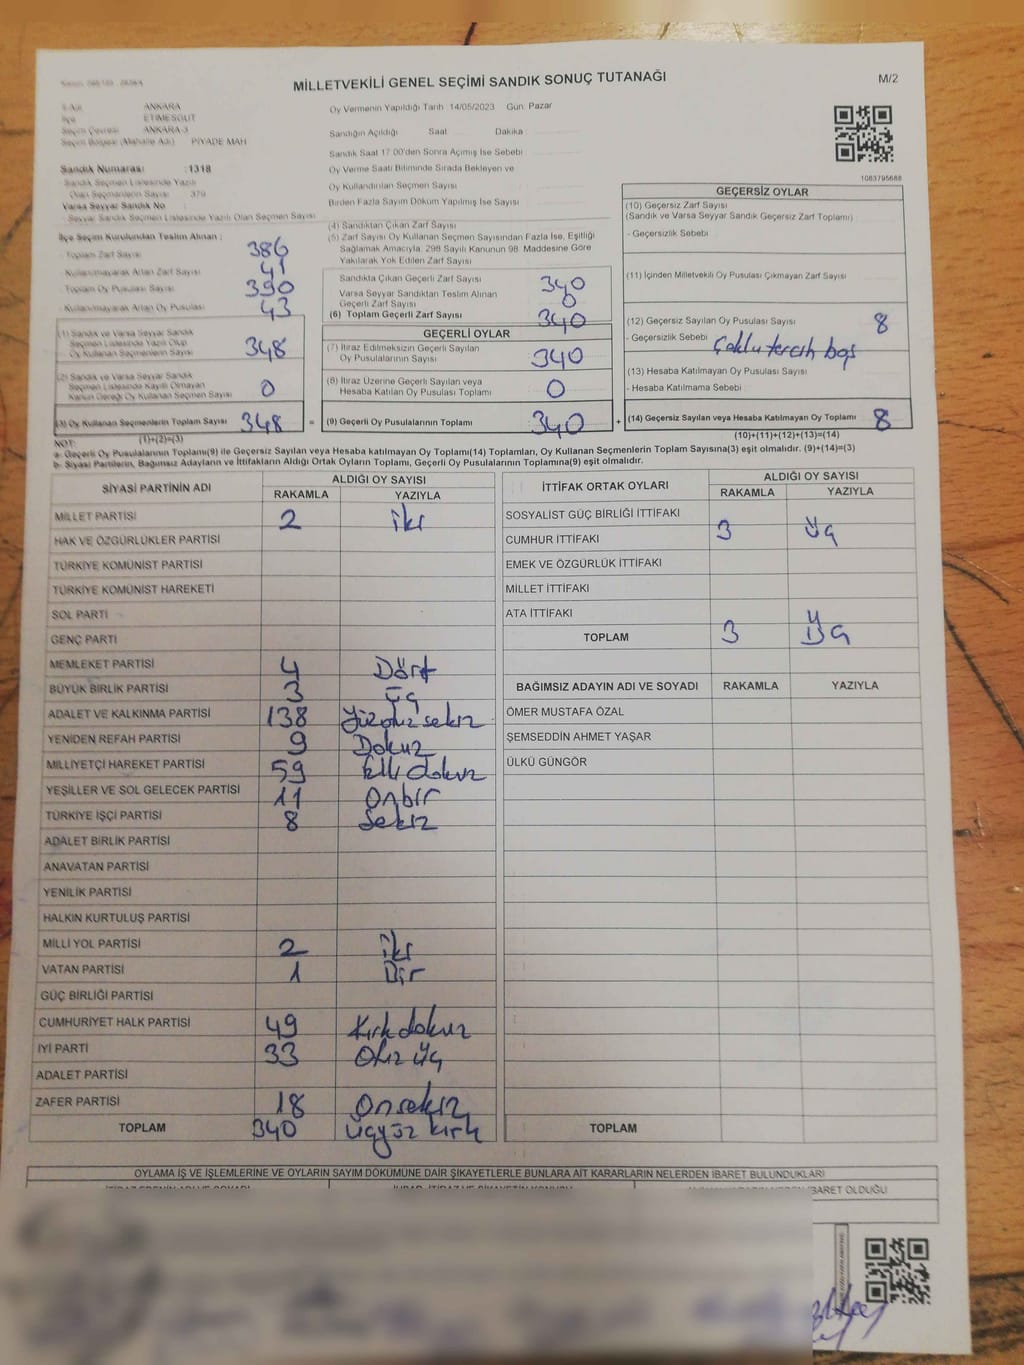 MİLLETVEKİLİ GENEL SEÇİMİ SANDIK SONUÇ TUTANAĞI
M/2
ANKARA
İlçe ETİMESGUT
Seçim Çevresi ANKARA-3
Seçim Bölgesi (Mahalle Adı) PİYADE MAH
Sandık Numarası :1318
Sandık Seçmen Listesinde Yazılı
Olan Seçmenlerin Sayısı 379
Varsa Seyyar Sandık No
Seyyar Sandık Seçmen Listesinde Yazılı Olan Seçmen Sayısı
İlçe Seçim Kurulundan Teslim Alınan :
- Toplam Zarf Sayısı 386
- Kullanılmayarak Artan Zarf Sayısı 41
- Toplam Oy Pusulası Sayısı 390
- Kullanılmayarak Artan Oy Pusulası 43
(1) Sandık ve Varsa Seyyar Sandık
Seçmen Listesinde Yazılı Olup
Oy Kullanan Seçmenlerin Sayısı 348
(2) Sandık ve Varsa Seyyar Sandık
Seçmen Listesinde Kayıtlı Olmayan
Kanun Gereği Oy Kullanan Seçmen Sayısı 0
(3) Oy Kullanan Seçmenlerin Toplam Sayısı 348 =
(1)+(2)=(3)
Oy Vermenin Yapıldığı Tarih 14/05/2023 Gün Pazar
Sandığın Açıldığı Saat Dakika
Sandık Saat 17:00'den Sonra Açılmış İse Sebebi
Oy Verme Saati Bitiminde Sırada Bekleyen ve
Oy Kullandırılan Seçmen Sayısı
Birden Fazla Sayım Döküm Yapılmış İse Sayısı
(4) Sandıktan Çıkan Zarf Sayısı
(5) Zarf Sayısı Oy Kullanan Seçmen Sayısından Fazla İse, Eşitliği
Sağlamak Amacıyla, 298 Sayılı Kanunun 98. Maddesine Göre
Yakılarak Yok Edilen Zarf Sayısı
Sandıkta Çıkan Geçerli Zarf Sayısı 340
Varsa Seyyar Sandıktan Teslim Alınan
Geçerli Zarf Sayısı 0
(6) Toplam Geçerli Zarf Sayısı 340
GEÇERLİ OYLAR
(7) İtiraz Edilmeksizin Geçerli Sayılan
Oy Pusulalarının Sayısı 340
(8) İtiraz Üzerine Geçerli Sayılan veya
Hesaba Katılan Oy Pusulası Toplamı 0
(9) Geçerli Oy Pusulalarının Toplamı 340 +
1083795688
GEÇERSİZ OYLAR
(10) Geçersiz Zarf Sayısı
(Sandık ve Varsa Seyyar Sandık Geçersiz Zarf Toplamı)
- Geçersizlik Sebebi
(11) İçinden Milletvekili Oy Pusulası Çıkmayan Zarf Sayısı
(12) Geçersiz Sayılan Oy Pusulası Sayısı 8
- Geçersizlik Sebebi Çoklu tercih boş
(13) Hesaba Katılmayan Oy Pusulası Sayısı
- Hesaba Katılmama Sebebi
(14) Geçersiz Sayılan veya Hesaba Katılmayan Oy Toplamı 8
(10)+(11)+(12)+(13)=(14)
NOT:
a- Geçerli Oy Pusulalarının Toplamı(9) ile Geçersiz Sayılan veya Hesaba katılmayan Oy Toplamı(14) Toplamları, Oy Kullanan Seçmenlerin Toplam Sayısına(3) eşit olmalıdır. (9)+(14)=(3)
b- Siyasi Partilerin, Bağımsız Adayların ve İttifakların Aldığı Ortak Oyların Toplamı, Geçerli Oy Pusulalarının Toplamına(9) eşit olmalıdır.
SİYASİ PARTİNİN ADI ALDIĞI OY SAYISI
RAKAMLA YAZIYLA
MİLLET PARTİSİ 2 iki
HAK VE ÖZGÜRLÜKLER PARTİSİ
TÜRKİYE KOMÜNİST PARTİSİ
TÜRKİYE KOMÜNİST HAREKETİ
SOL PARTİ
GENÇ PARTİ
MEMLEKET PARTİSİ 4 Dört
BÜYÜK BİRLİK PARTİSİ 3 üç
ADALET VE KALKINMA PARTİSİ 138 Yüzotuzsekiz
YENİDEN REFAH PARTİSİ 9 Dokuz
MİLLİYETÇİ HAREKET PARTİSİ 59 Elli dokuz
YEŞİLLER VE SOL GELECEK PARTİSİ 11 Onbir
TÜRKİYE İŞÇİ PARTİSİ 8 Sekiz
ADALET BİRLİK PARTİSİ
ANAVATAN PARTİSİ
YENİLİK PARTİSİ
HALKIN KURTULUŞ PARTİSİ
MİLLİ YOL PARTİSİ 2 iki
VATAN PARTİSİ 1 Bir
GÜÇ BİRLİĞİ PARTİSİ
CUMHURİYET HALK PARTİSİ 49 Kırkdokuz
İYİ PARTİ 33 Otuz üç
ADALET PARTİSİ
ZAFER PARTİSİ 18 Onsekiz
TOPLAM 340 üçyüz kırk
İTTİFAK ORTAK OYLARI ALDIĞI OY SAYISI
RAKAMLA YAZIYLA
SOSYALİST GÜÇ BİRLİĞİ İTTİFAKI
CUMHUR İTTİFAKI 3 üç
EMEK VE ÖZGÜRLÜK İTTİFAKI
MİLLET İTTİFAKI
ATA İTTİFAKI
TOPLAM 3 üç
BAĞIMSIZ ADAYIN ADI VE SOYADI RAKAMLA YAZIYLA
ÖMER MUSTAFA ÖZAL
ŞEMSEDDİN AHMET YAŞAR
ÜLKÜ GÜNGÖR
TOPLAM
OYLAMA İŞ VE İŞLEMLERİNE VE OYLARIN SAYIM DÖKÜMÜNE DAİR ŞİKAYETLERLE BUNLARA AİT KARARLARIN NELERDEN İBARET BULUNDUKLARI
İBARET OLDUĞU